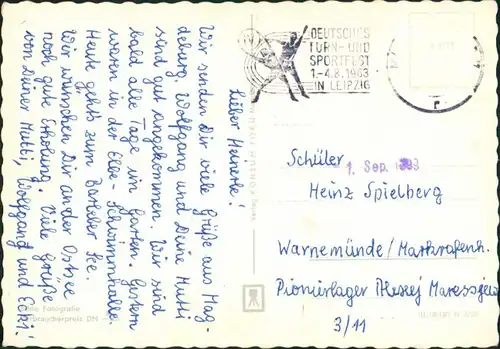 DEUTSCHES
TURN- UND
SPORTFEST
1.-4.8.1963
IN LEIPZIG
Lieber Heinerle!
Wir senden Dir viele Grüße aus Mag-
deburg. Wolfgang und Deine Mutti
sind gut angekommen. Wir sind
bald alle Tage im Garten. Gestern
waren in der Elbe-Schwimmhalle.
Heute geht's zum Barbeler See.
Wir wünschen Dir an der Ostsee
noch gute Erholung. Viele Grüße
von Deiner Mutti, Wolfgang und Ecki!
1. Sep.
Schüler
Heinz Spielberg
Warnemünde/Markgrafenh.
Pionierlager Alexej Maressjew
3/11
Fotografie
Verbraucherpreis DM